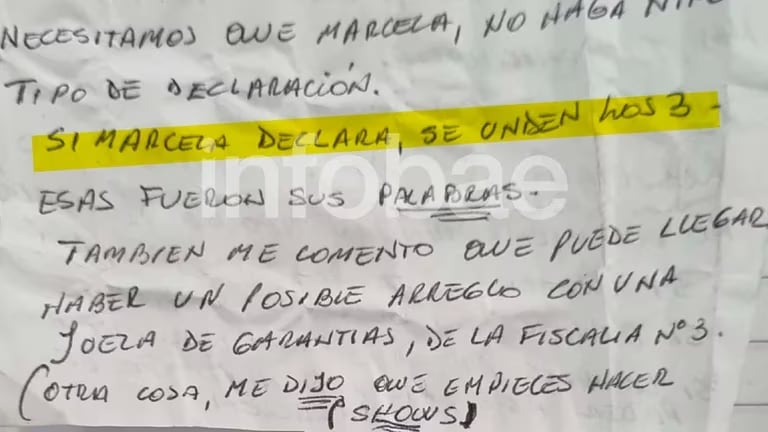 NECESITAMOS QUE MARCELA, NO HAGA
TIPO DE DECLARACIÓN.
SI MARCELA DECLARA, SE UNDEN LOS 3 -
ESAS FUERON SUS PALABRAS.
infobae
TAMBIEN ME COMENTO QUE PUEDE LLEGAR
HABER UN POSIBLE ARREGLO CON UNA
JUEZA DE GARANTIAS, DE LA FISCALIA Nº3.
(OTRA COSA, ME DIJO QUE EMPIECES HACER
(SHOWS)